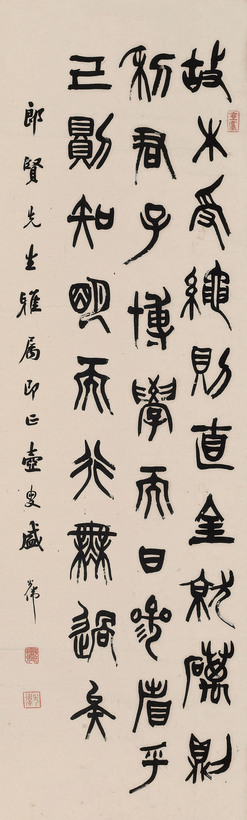 故木受繩則直金就礪則
利君子博學而日參省乎
己則知明而行無過矣
郎賢先生雅屬即正壺叟盛